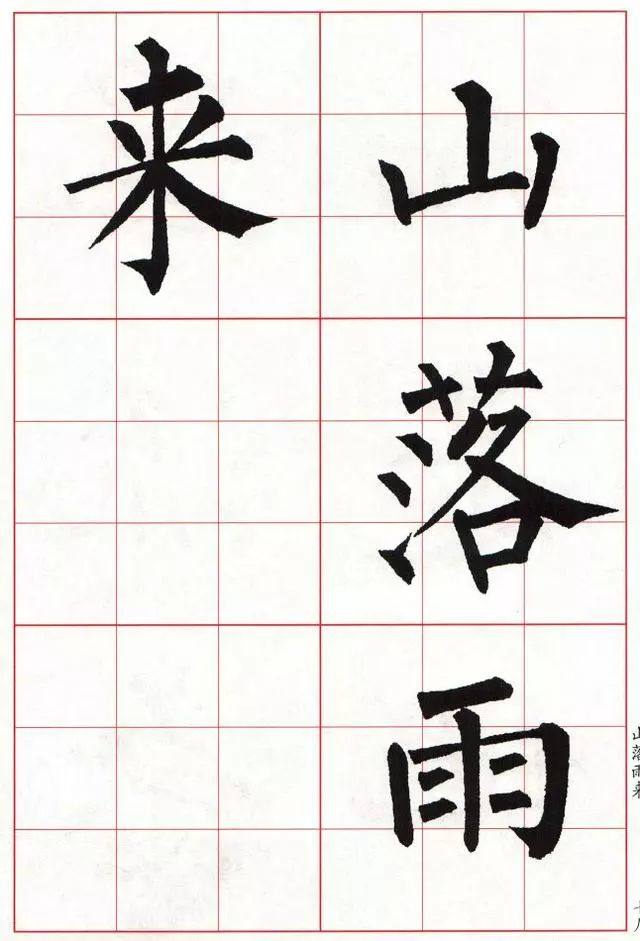 山落雨
来
山落雨来
十八